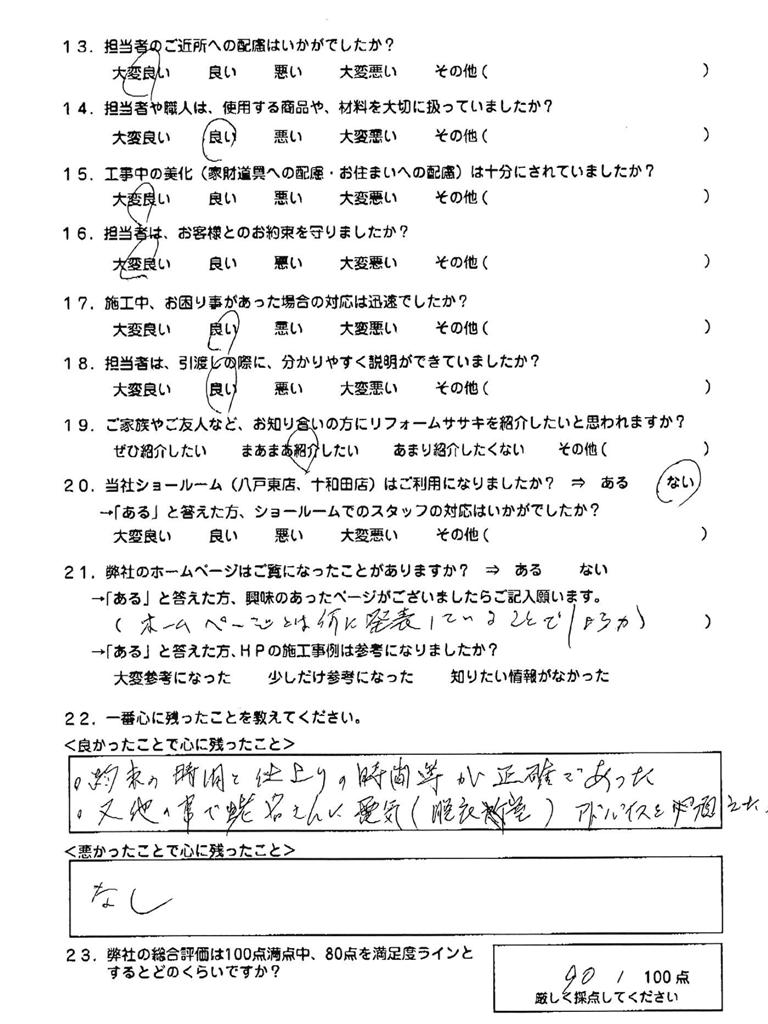 13．担当者のご近所への配慮はいかがでしたか？
大変良い　良い　悪い　大変悪い　その他（　）
14．担当者や職人は、使用する商品や、材料を大切に扱っていましたか？
大変良い　良い　悪い　大変悪い　その他（　）
15．工事中の美化（家財道具への配慮・お住まいへの配慮）は十分にされていましたか？
大変良い　良い　悪い　大変悪い　その他（　）
16．担当者は、お客様とのお約束を守りましたか？
大変良い　良い　悪い　大変悪い　その他（　）
17．施工中、お困り事があった場合の対応は迅速でしたか？
大変良い　良い　悪い　大変悪い　その他（　）
18．担当者は、引渡しの際に、分かりやすく説明ができていましたか？
大変良い　良い　悪い　大変悪い　その他（　）
19．ご家族やご友人など、お知り合いの方にリフォームササキを紹介したいと思われますか？
ぜひ紹介したい　まあまあ紹介したい　あまり紹介したくない　その他（　）
20．当社ショールーム（八戸東店、十和田店）はご利用になりましたか？　⇒　ある　ない
→「ある」と答えた方、ショールームでのスタッフの対応はいかがでしたか？
大変良い　良い　悪い　大変悪い　その他（　）
21．弊社のホームページはご覧になったことがありますか？　⇒　ある　ない
→「ある」と答えた方、興味のあったページがございましたらご記入願います。
（ホームページとは何に発表していることで　）
→「ある」と答えた方、HPの施工事例は参考になりましたか？
大変参考になった　少しだけ参考になった　知りたい情報がなかった
22．一番心に残ったことを教えてください。
＜良かったことで心に残ったこと＞
。約束の時間と仕上りの時間等が正確であった
。又他の事で さんに電気（脱衣 ）アドバイスを
＜悪かったことで心に残ったこと＞
なし
23．弊社の総合評価は100点満点中、80点を満足度ラインと
するとどのくらいですか？
90 / 100点
厳しく採点してください